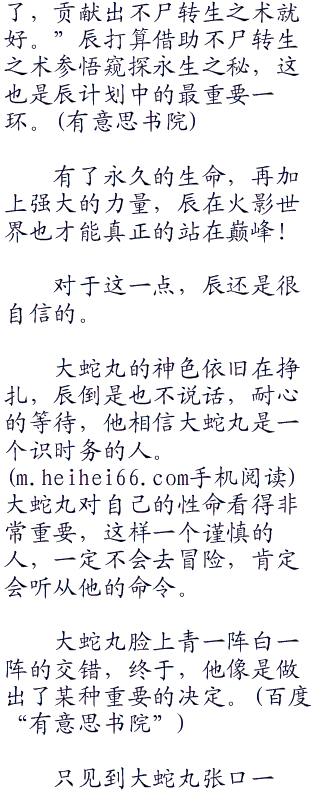 了，贡献出不尸转生之术就
好。”辰打算借助不尸转生
之术参悟窥探永生之秘，这
也是辰计划中的最重要一
环。(有意思书院)
有了永久的生命，再加
上强大的力量，辰在火影世
界也才能真正的站在巅峰！
对于这一点，辰还是很
自信的。
大蛇丸的神色依旧在挣
扎，辰倒是也不说话，耐心
的等待，他相信大蛇丸是一
个识时务的人。
(m.heihei66.com手机阅读)
大蛇丸对自己的性命看得非
常重要，这样一个谨慎的
人，一定不会去冒险，肯定
会听从他的命令。
大蛇丸脸上青一阵白一
阵的交错，终于，他像是做
出了某种重要的决定。(百度
“有意思书院”)
只见到大蛇丸张口一